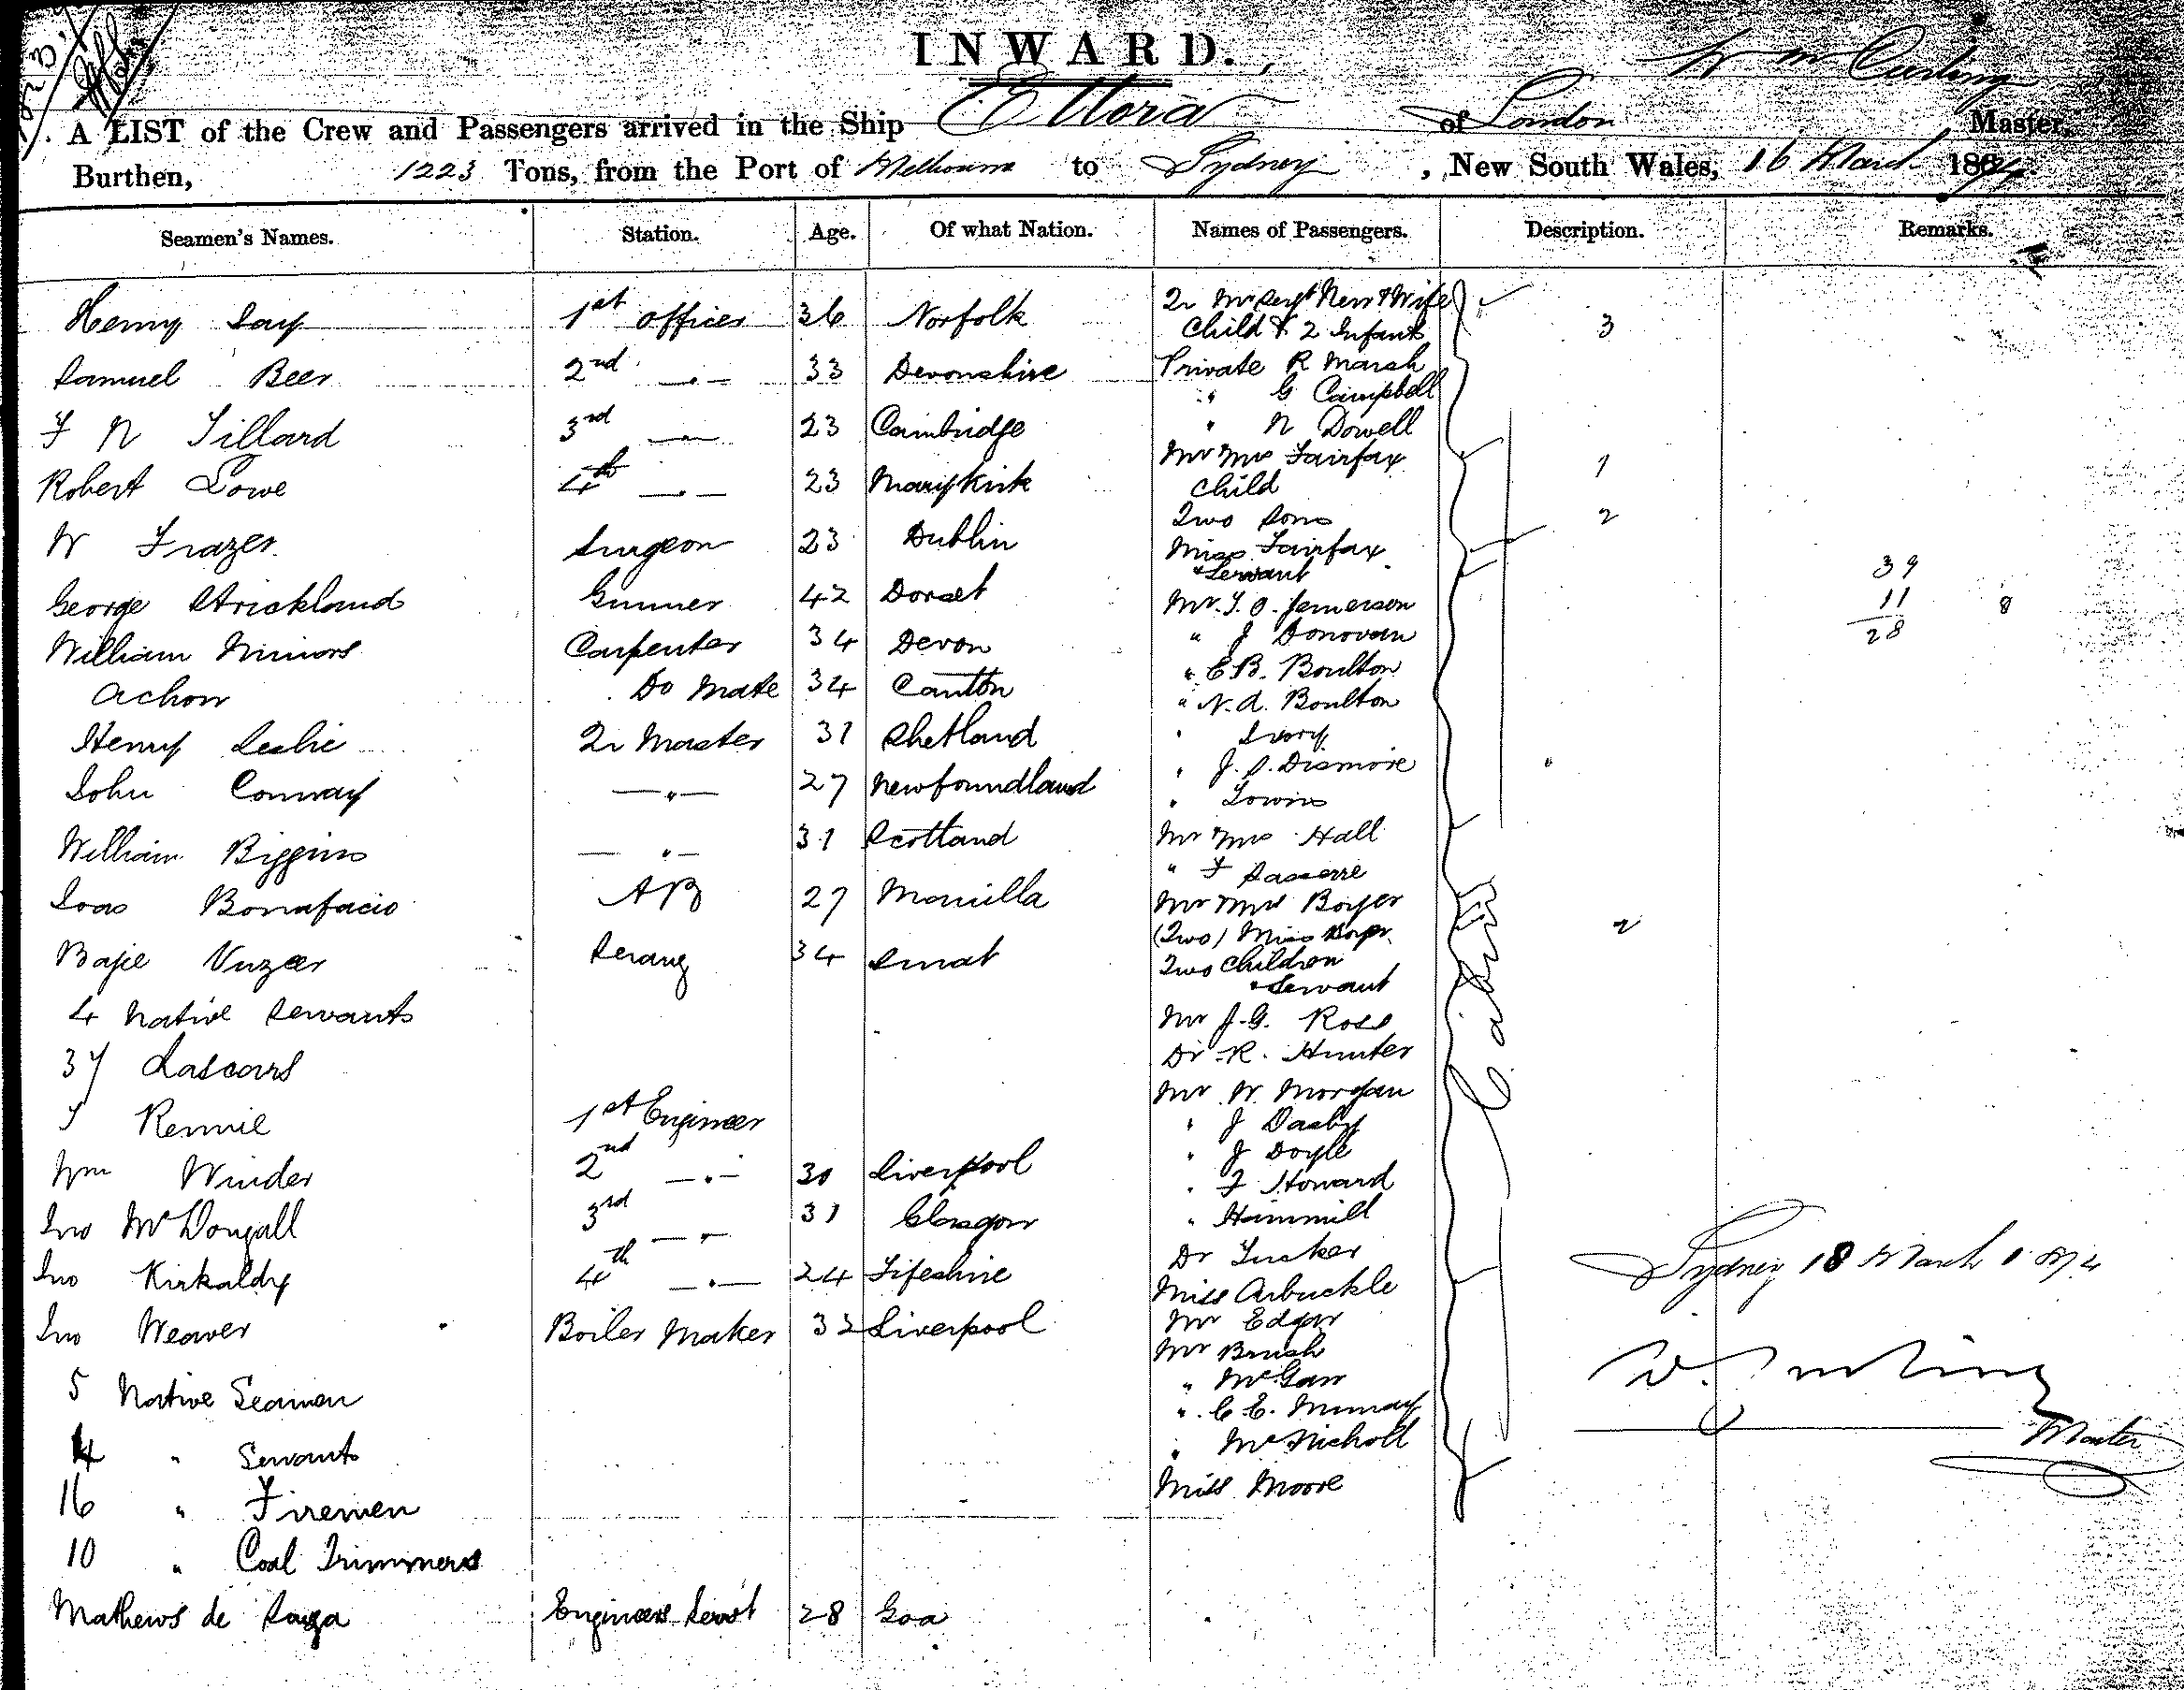 INWARD.
A LIST of the Crew and Passengers arrived in the Ship Ellora of London Master,
Burthen, 1223 Tons, from the Port of Melbourne to Sydney, New South Wales, 16 March 1874
Seamen's Names. Station. Age. Of what Nation. Names of Passengers. Description. Remarks.
Henry Day 1st officer 36 Norfolk Qr Mr Sergt & Wife
Child & 2 Infants 3
Samuel Beer 2nd —"— 33 Devonshire Private R Marsh
" G Campbell
F N Tillard 3rd —"— 23 Cambridge " N Dowell
Mr Mrs Fairfax
Robert Lowe 4th —"— 23 Marykirk Child 1
Two Sons 2
W Frazer Surgeon 23 Dublin Miss Fairfax
& Servant 39
George Strickland Gunner 42 Dorset Mr. T. O. Jemerson 11 8
William Carpenter 34 Devon " J Donovan 28
" E B. Boulton
Achow Do Mate 34 Canton " N. A. Boulton
Henry Leslie Qr Master 31 Shetland " Ivory
" J. S. Dismore
John Conway —"— 27 Newfoundland " Towins
William Biggins —"— 31 Scotland Mr Mrs Hall
" F
Joas Bonafacio AB 27 Manilla Mr Mrs Boyer
(Two) Miss Boyer 2
Baje Vuzeer Serang 34 Surat Two Children
& Servant
4 Native Servants Mr J. G. Ross
37 Lascars Dr R. Hunter
Cabin
Mr W. Morgan
Rennie 1st Engineer " J Dasby
" J Doyle
Wm Winder 2nd —"— 30 Liverpool " F Howard
Jno McDougall 3rd —"— 31 Glasgow " Hammill
Dr Tucker
Jno Kirkaldy 4th —"— 24 Fifeshire Miss Arbuckle Sydney 18 March 1874
Jno Weaver Boiler Maker 32 Liverpool Mr Edgar
Mr Brush
5 Native Seamen " McGaw
" C. E. Murray
4 " Servants " McNicholl Master
16 " Firemen Miss Moore
10 " Coal Trimmers
Mathews de Souza Engineers Servt 28 Goa